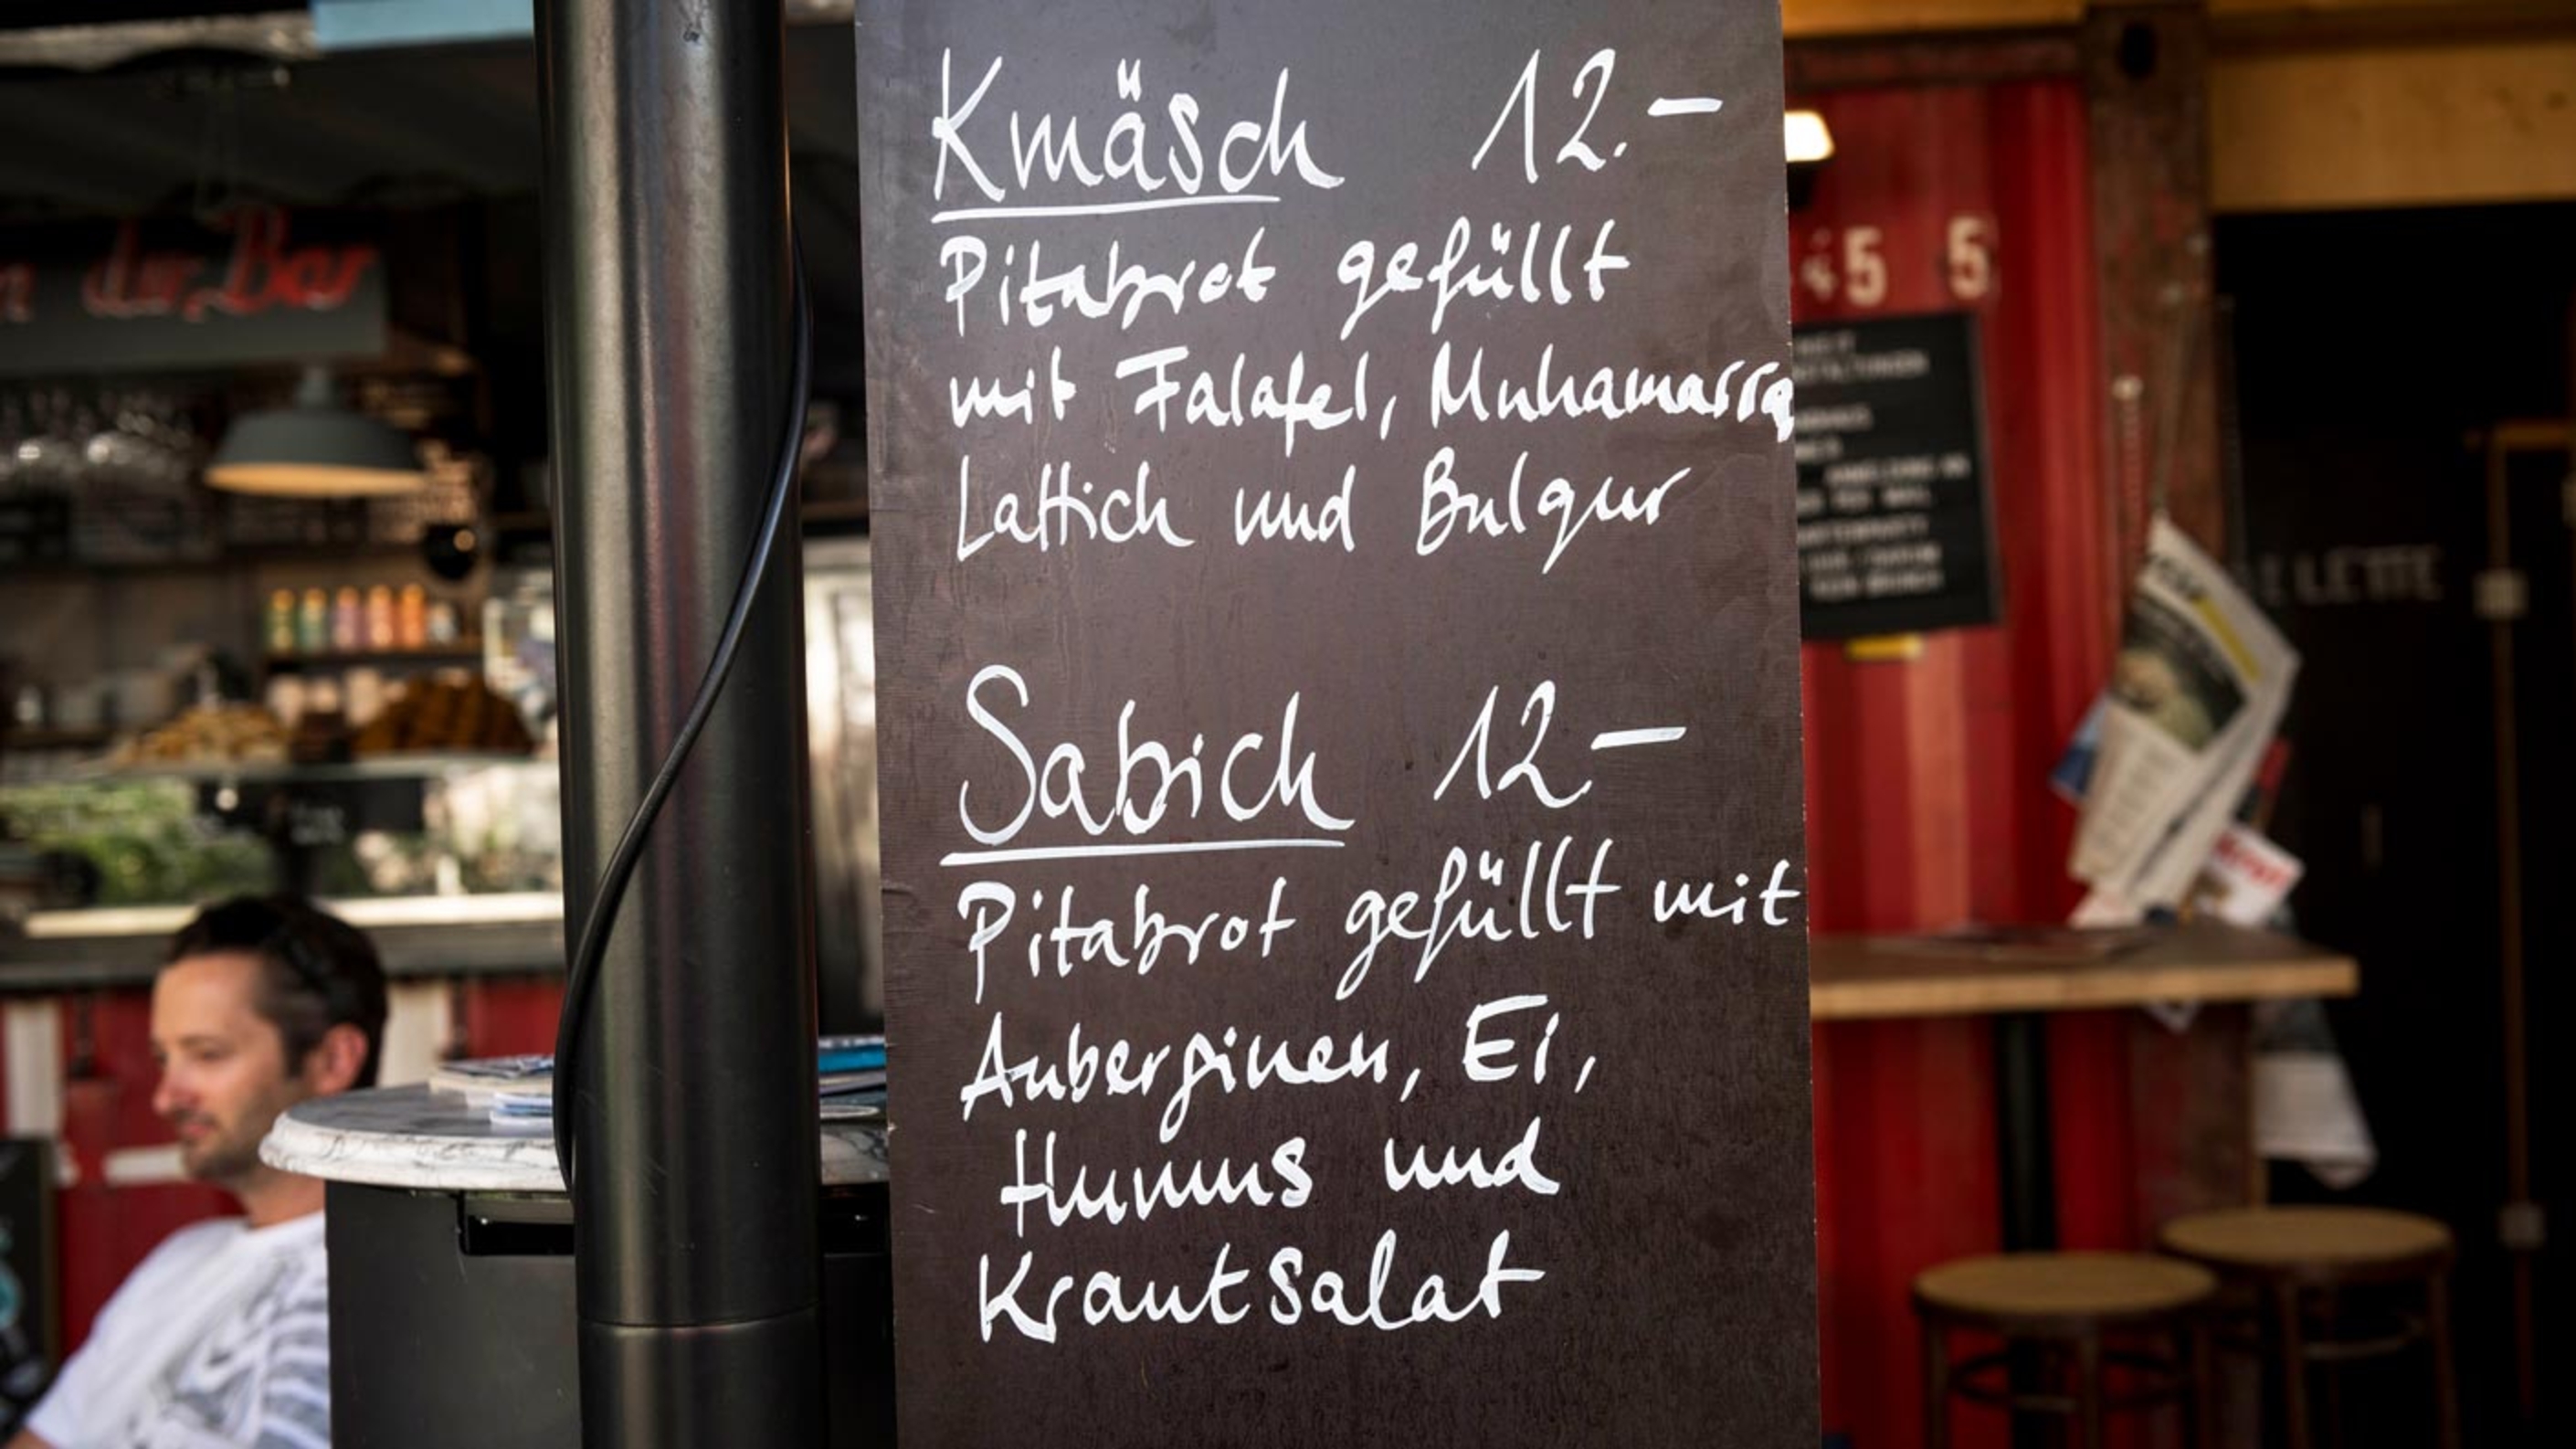 Kmäsch 12.–
Pitabrot gefüllt
mit Falafel, Muhamarra
Lattich und Bulgur
Sabich 12.–
Pitabrot gefüllt mit
Auberginen, Ei,
Humus und
Krautsalat
der Bar
45 5